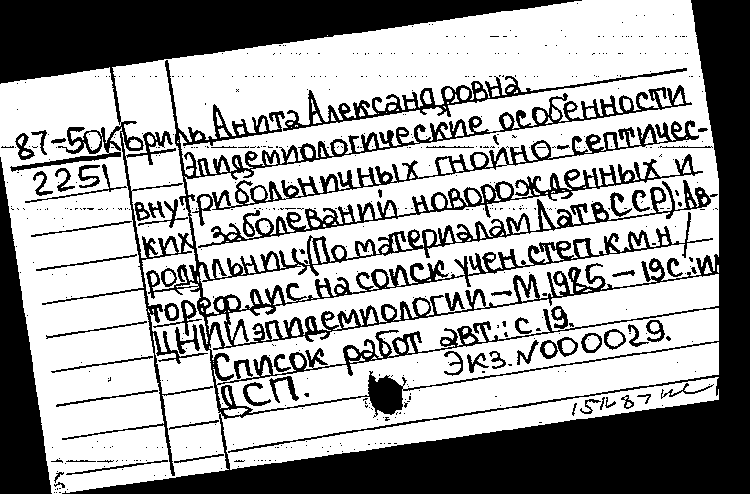 87-50К
2251
Бриль, Анита Александровна.
Эпидемиологические особенности
внутрибольничных гнойно-септичес-
ких заболеваний новорожденных и
родильниц: (По материалам ЛатвССР): Ав-
тореф. дис. на соиск. учен. степ. к.м.н. /
ЦНИИ эпидемиологии. - М., 1985. - 19 с.; ил
Список работ авт.: с. 19.
ДСП. Экз. N000029.